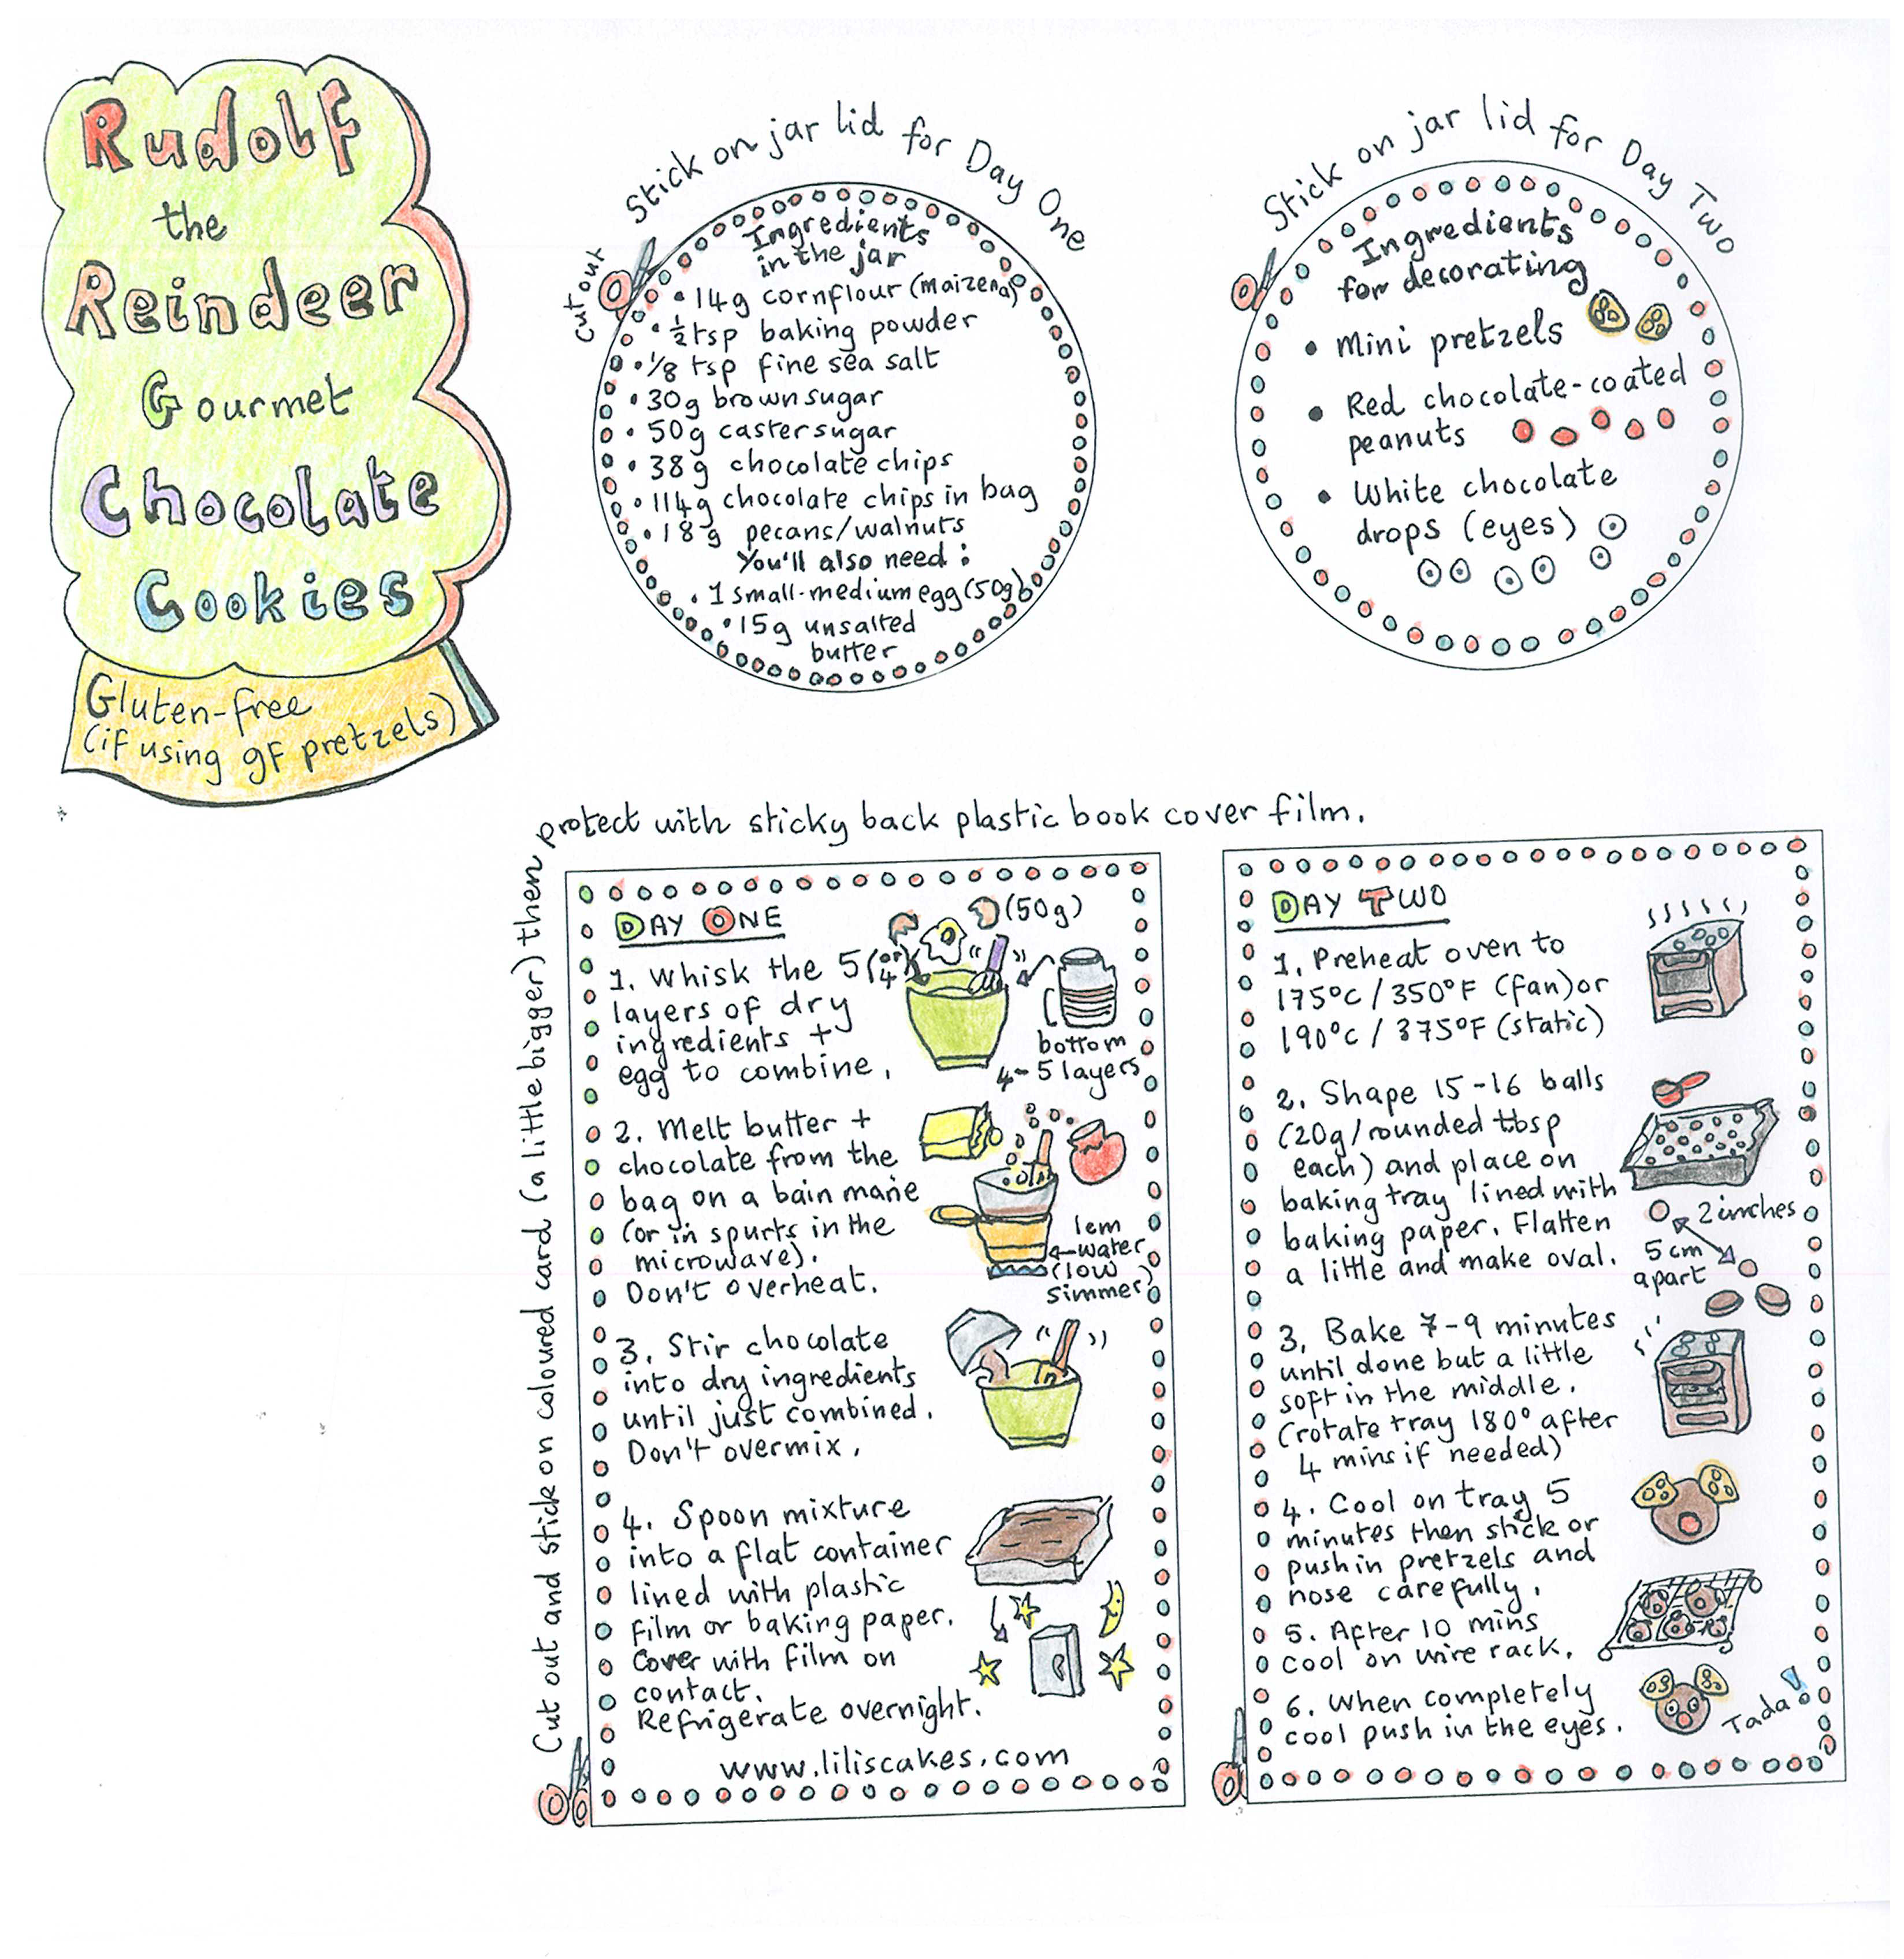 Rudolf
the
Reindeer
Gourmet
Chocolate
Cookies
Gluten-free
(if using gf pretzels)
Stick on jar lid for Day One
cut out
Ingredients
in the jar
• 14g cornflour (maizena)
• ½ tsp baking powder
• ⅛ tsp fine sea salt
• 30g brown sugar
• 50g caster sugar
• 38g chocolate chips
• 114g chocolate chips in bag
• 18g pecans/walnuts
You'll also need:
• 1 small-medium egg (50g)
• 15g unsalted
butter
Stick on jar lid for Day Two
Ingredients
for decorating
• Mini pretzels
• Red chocolate-coated
peanuts
• White chocolate
drops (eyes)
Cut out and stick on coloured card (a little bigger) then
protect with sticky back plastic book cover film.
DAY ONE
(50g)
1. Whisk the 5 (or 4)
layers of dry
ingredients +
egg to combine.
bottom
4-5 layers
2. Melt butter +
chocolate from the
bag on a bain marie
(or in spurts in the
microwave).
Don't overheat.
1cm
water
(low
simmer)
3. Stir chocolate
into dry ingredients
until just combined.
Don't overmix.
4. Spoon mixture
into a flat container
lined with plastic
film or baking paper.
Cover with film on
contact.
Refrigerate overnight.
www.liliscakes.com
DAY TWO
1. Preheat oven to
175°C / 350°F (fan) or
190°C / 375°F (static)
2. Shape 15-16 balls
(20g/rounded tbsp
each) and place on
baking tray lined with
baking paper. Flatten
a little and make oval.
2 inches
5 cm
apart
3. Bake 7-9 minutes
until done but a little
soft in the middle.
(rotate tray 180° after
4 mins if needed)
4. Cool on tray 5
minutes then stick or
push in pretzels and
nose carefully.
5. After 10 mins
cool on wire rack.
6. When completely
cool push in the eyes.
Tada!